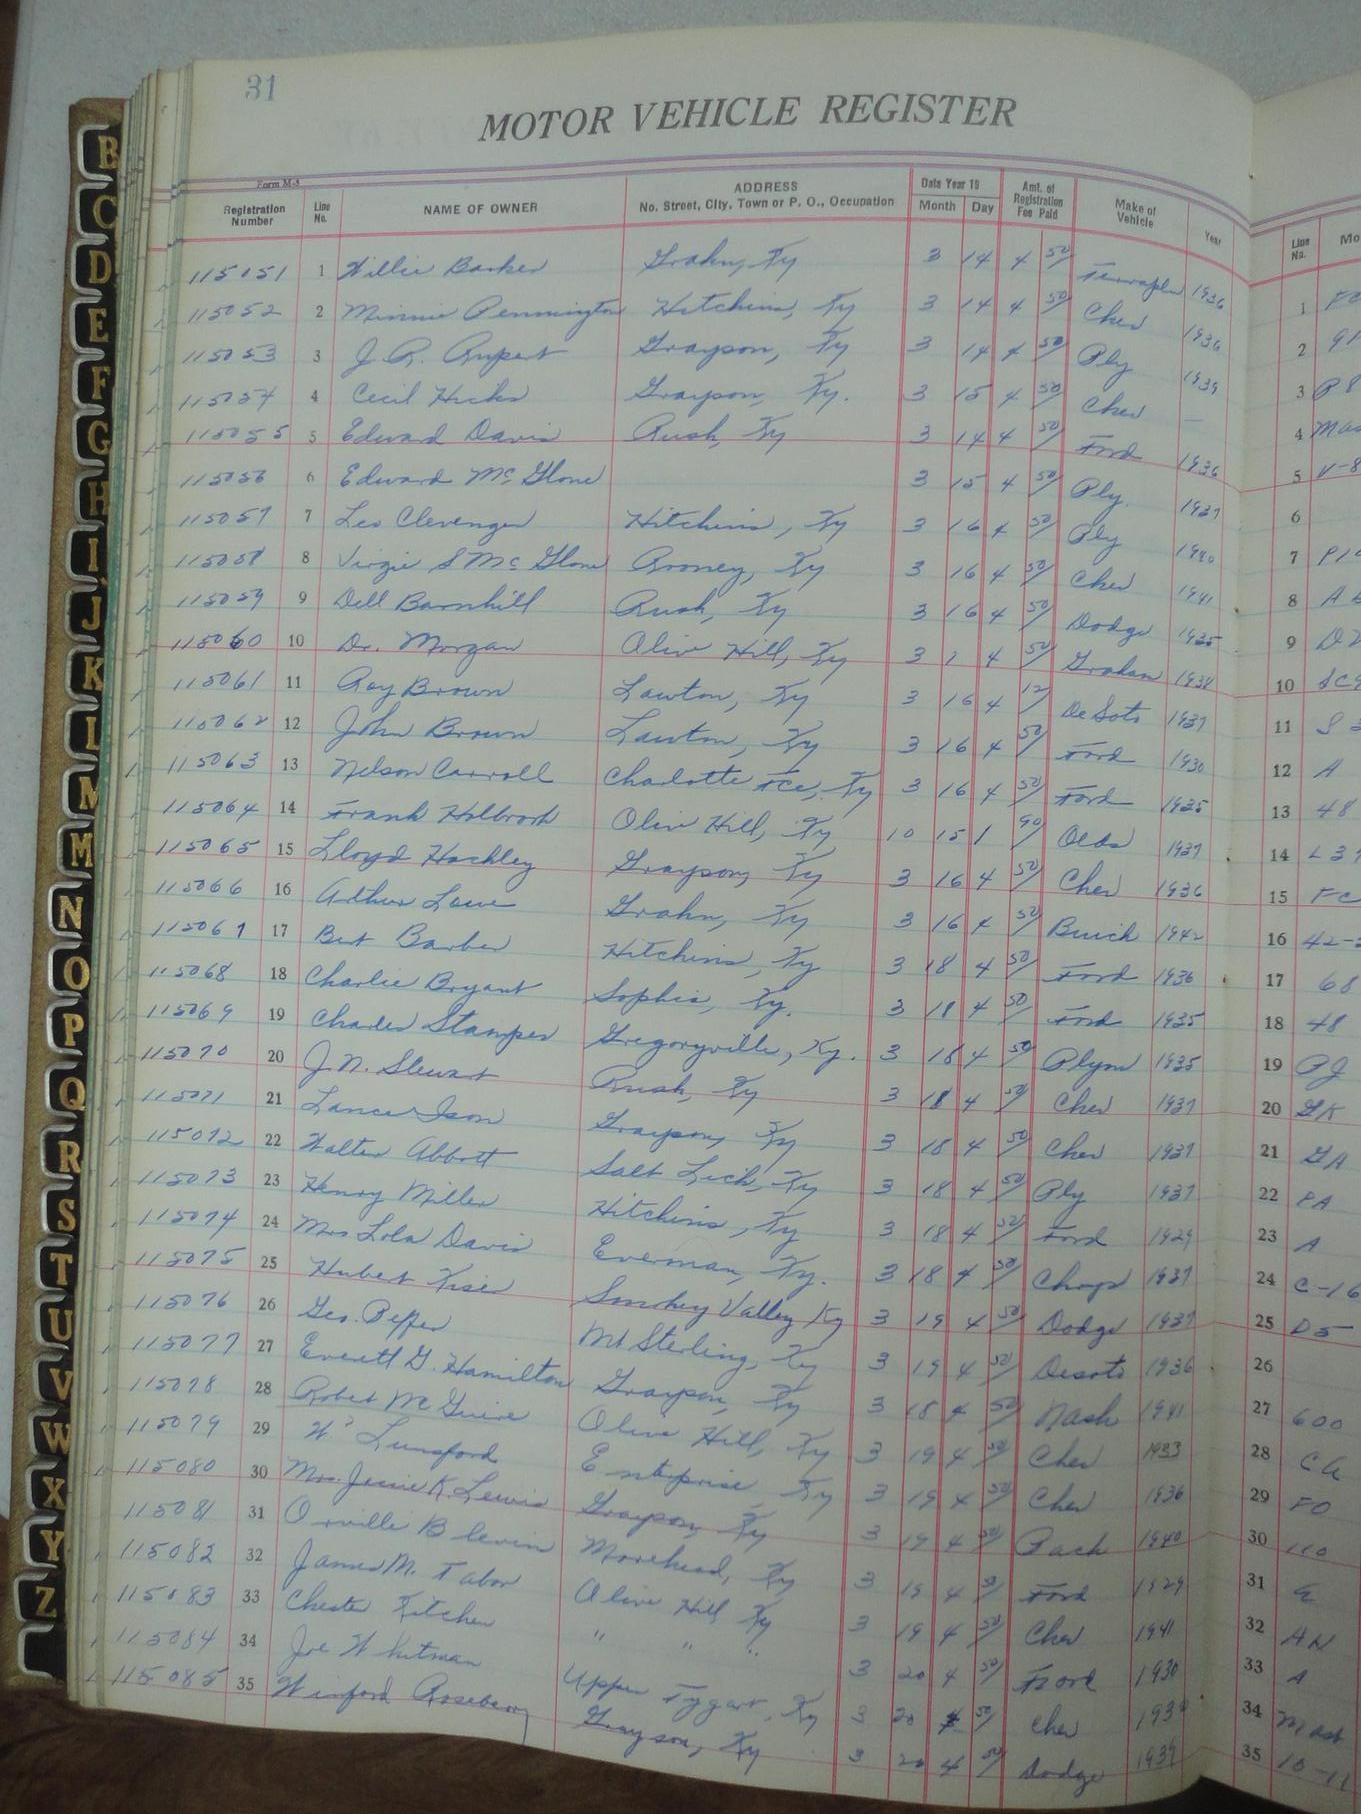 31
MOTOR VEHICLE REGISTER
Form M-3
Registration Number Line No. NAME OF OWNER ADDRESS No. Street, City, Town or P. O., Occupation Date Year 19 Month Day Amt. of Registration Fee Paid Make of Vehicle Year Line No. Mo
115051 1 Willie Barker Grahn, Ky 3 14 4 50/ 1936 1
115052 2 Minnie Pennington Hitchins, Ky 3 14 4 50/ Chev 1936 2 91
115053 3 J. R. Rupert Grayson, Ky 3 14 4 50/ Ply 1939 3 P8
115054 4 Cecil Hicks Grayson, Ky. 3 15 4 50/ Chev — 4 Mas
115055 5 Edward Davis Rush, Ky 3 14 4 50/ Ford 1936 5 V-8
115056 6 Edward McGlone 3 15 4 50/ Ply. 1937 6
115057 7 Leo Clevenger Hitchins, Ky 3 16 4 50/ Ply 1940 7 P10
115058 8 Virgie S McGlone Rooney, Ky 3 16 4 50/ Chev 1941 8 A
115059 9 Dell Barnhill Rush, Ky 3 16 4 50/ Dodge 1935 9 D2
115060 10 Dr. Morgan Olive Hill, Ky 3 4 50/ Graham 1938 10
115061 11 Roy Brown Lawton, Ky 3 16 4 12/ DeSoto 1937 11 S 3
115062 12 John Brown Lawton, Ky 3 16 4 50/ Ford 1930 12 A
115063 13 Nelson Carroll Charlotte Fce, Ky 3 16 4 50/ Ford 1935 13 48
115064 14 Frank Holbrook Olive Hill, Ky 10 15 1 90/ Olds 1937 14 L37
115065 15 Lloyd Hackley Grayson, Ky 3 16 4 50/ Chev 1936 15 FC
115066 16 Arthur Lowe Grahn, Ky 3 16 4 50/ Buick 1942 16 42-
115067 17 Bert Barber Hitchins, Ky 3 18 4 50/ Ford 1936 17 68
115068 18 Charlie Bryant Sophia, Ky. 3 18 4 50/ Ford 1935 18 48
115069 19 Charles Stamper Gregoryville, Ky. 3 18 4 50/ Plym 1935 19 PJ
115070 20 J. N. Stewart Rush, Ky 3 18 4 50/ Chev 1937 20 GK
115071 21 Lance Ison Grayson, Ky 3 18 4 50/ Chev 1937 21 GA
115072 22 Walter Abbott Salt Lick, Ky 3 18 4 50/ Ply 1937 22 PA
115073 23 Henry Miller Hitchins, Ky 3 18 4 50/ Ford 1929 23 A
115074 24 Mrs Lola Davis Everman, Ky. 3 18 4 50/ Chrys 1937 24 C-16
115075 25 Hubert Kiser Smokey Valley Ky 3 19 4 50/ Dodge 1937 25 D5
115076 26 Geo. Peffer Mt Sterling, Ky 3 19 4 50/ Desoto 1936 26
115077 27 Everett G. Hamilton Grayson, Ky 3 18 4 50/ Nash 1941 27 600
115078 28 Robert McGuire Olive Hill, Ky 3 19 4 50/ Chev 1933 28 CA
115079 29 Lunsford Enterprise, Ky 3 19 4 50/ Chev 1936 29 FD
115080 30 Mrs. Jessie K. Lewis Grayson, Ky 3 19 4 50/ Pack 1940 30 110
115081 31 Orville Blevin Morehead, Ky 3 19 4 50/ Ford 1929 31
115082 32 James M. Tabor Olive Hill Ky 3 19 4 50/ Chev 1941 32
115083 33 Chester Kitchen " " " 3 20 4 50/ Ford 1930 33 A
115084 34 Joe Whitman Upper Tygart, Ky 3 20 4 50/ Chev 34 Mast
115085 35 Winford Roseberry Grayson, Ky 3 20 4 50/ Dodge 1937 35 10-11
B
C
D
E
F
G
H
I
J
K
L
M
M
N
O
P
Q
R
S
T
U
V
W
X
Y
Z